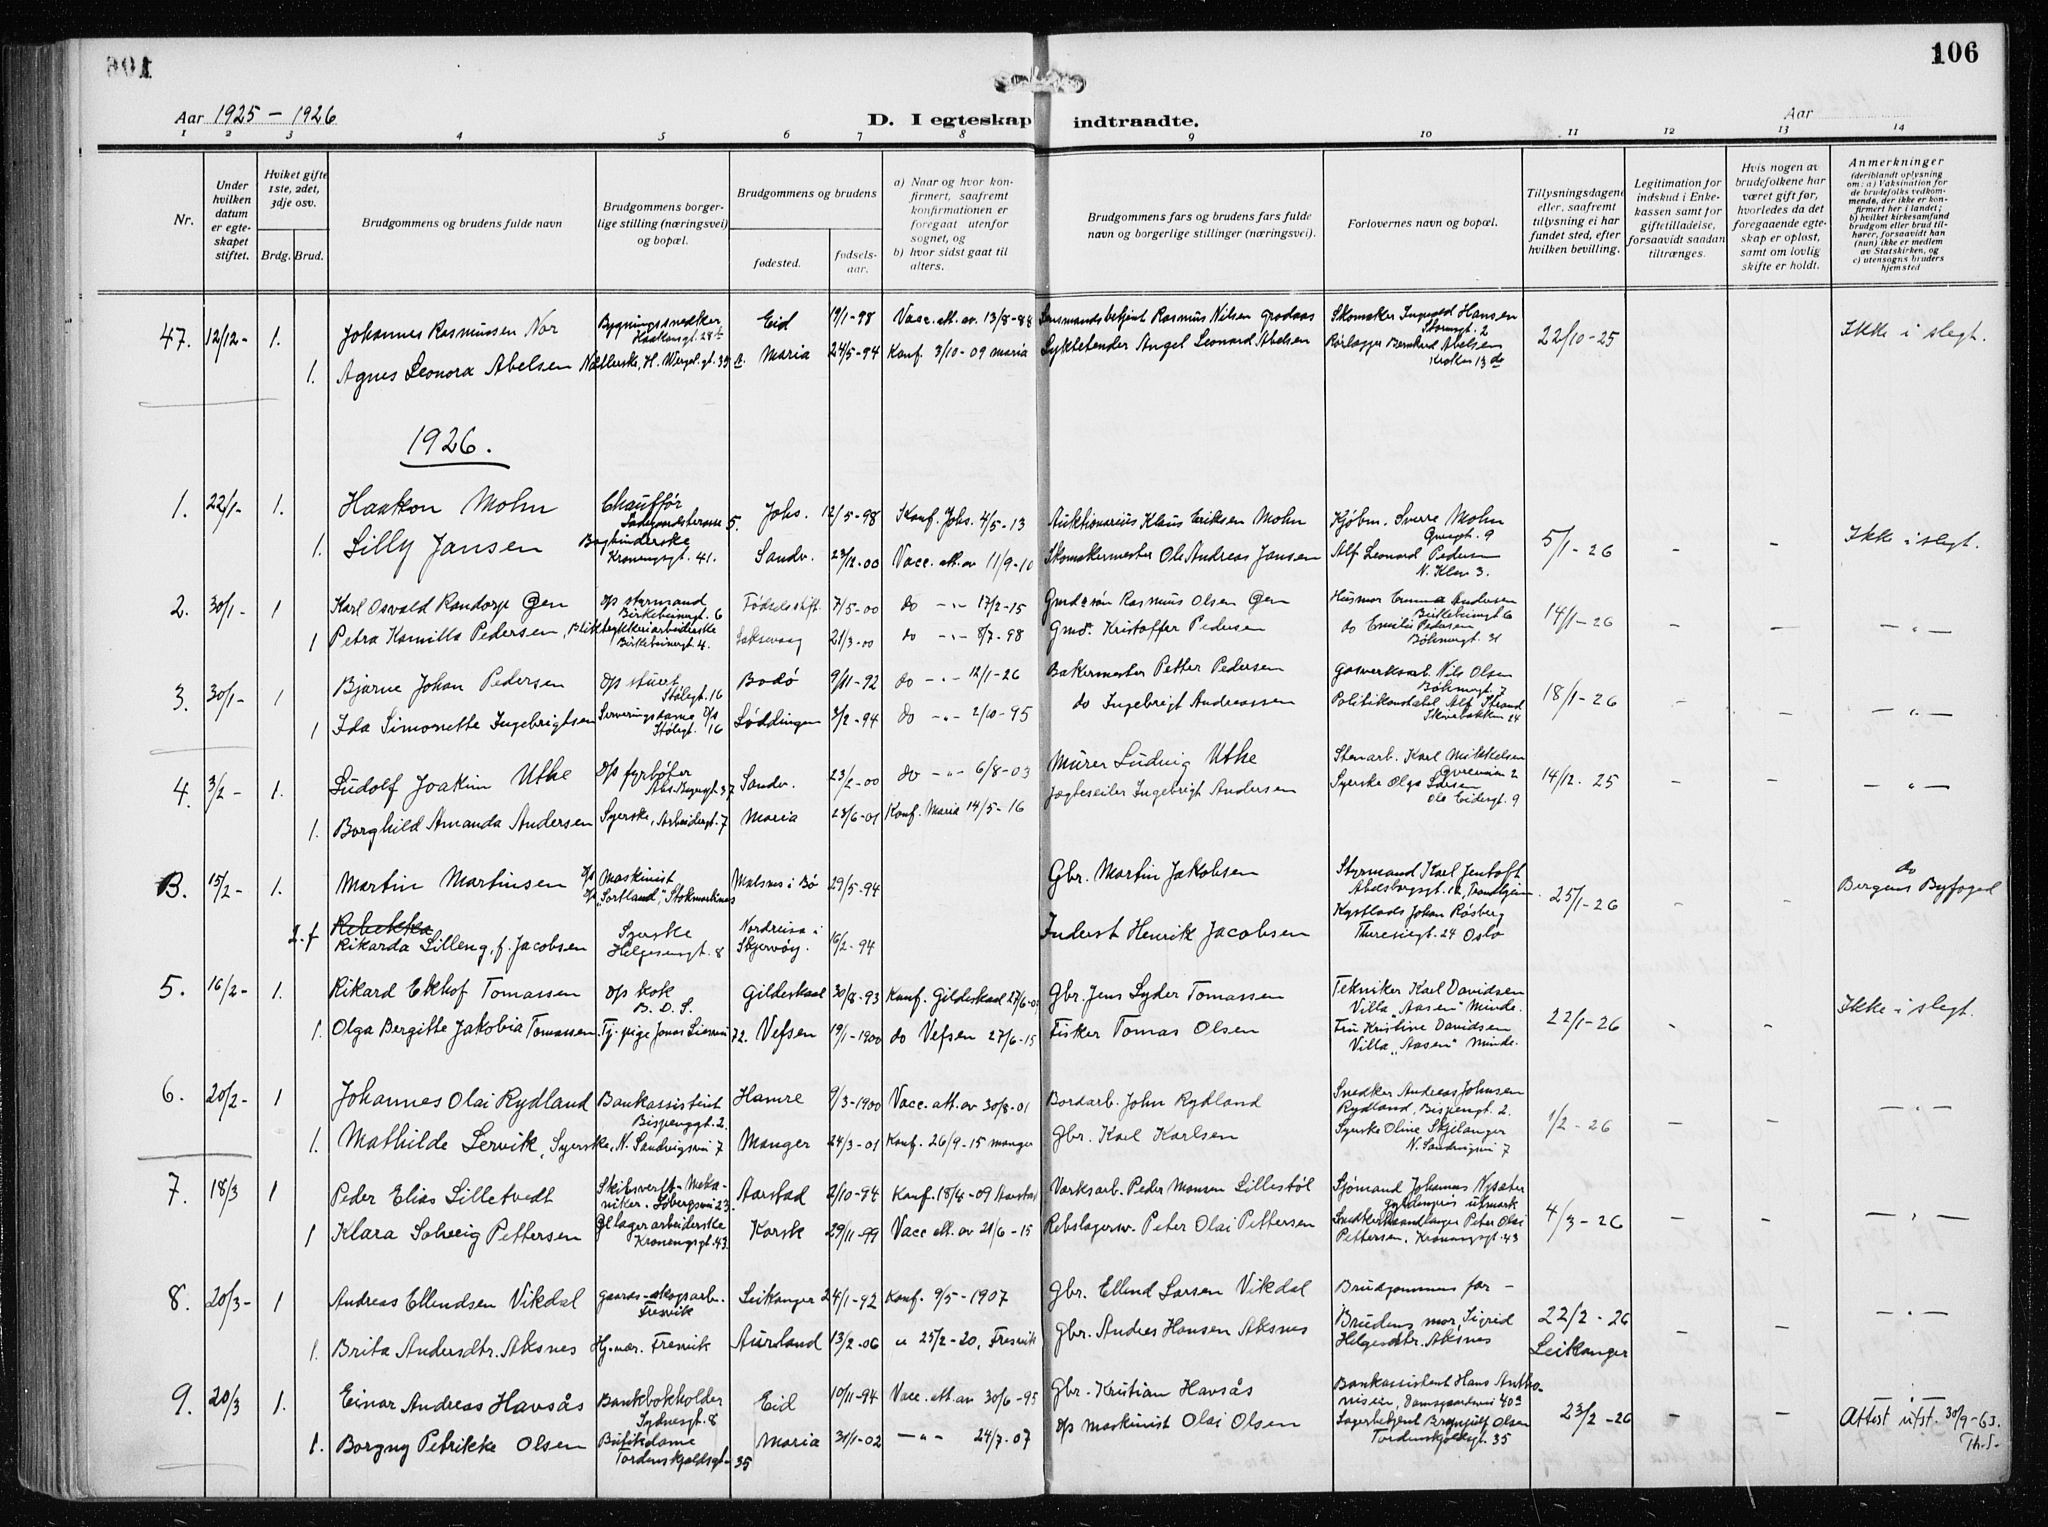 106
Aar 1925 – 1926
D. I egteskap indtraadte.
Aar
1 2 3 4 5 6 7 8 9 10 11 12 13 14
Nr.
Under hvilken datum er egteskapet stiftet.
Hviket gifte 1ste, 2det, 3dje osv.
Brdg. Brud.
Brudgommens og brudens fulde navn
Brudgommens borgerlige stilling (næringsvei) og bopæl.
Brudgommens og brudens
fødested.
fødselsaar.
a) Naar og hvor konfirmert, saafremt konfirmationen er foregaat utenfor sognet, og
b) hvor sidst gaat til alters.
Brudgommens fars og brudens fars fulde navn og borgerlige stillinger (næringsvei).
Forlovernes navn og bopæl.
Tillysningsdagene eller, saafremt tillysning ei har fundet sted, efter hvilken bevilling.
Legitimation for indskud i Enkekassen samt for giftetilladelse, forsaavidt saadan tiltrænges.
Hvis nogen av brudefolkene har været gift før, hvorledes da det foregaaende egteskap er opløst, samt om lovlig skifte er holdt.
Anmerkninger (deriblandt oplysning om: a) Vaksination for de brudefolks vedkommende, der ikke er konfirmert her i landet; b) hvilket kirkesamfund brudgom eller brud tilhører, forsaavidt han (hun) ikke er medlem av Statskirken, og c) utensogns bruders hjemsted
47. 12/12- 1. Johannes Rasmussen Nor Bygningssnedker Haakonsgt. 28 Eid 19/1-98 Vacc. att. av 13/8-88 Lensmandsbetjent Rasmus Nilsen Skomaker Ingvald Hansen 22/10-25 Ikke i slegt.
1. Agnes Leonora Abelsen H. Wergel. gt. 35 Maria 24/5-94 Konf. 3/10-09 Maria Lyktetender Angel Leonard Abelsen Rørlægger Bernhard Abelsen Kroken 13
1926.
1. 22/1- 1. Haakon Mohn Chauffør 5. Johs. 12/5-98 Konf. Johs. 4/5-13 Auktionarius Klaus Eriksen Mohn Kjøbm. Sverre Mohn 9 5/1-26 - - Ikke i slegt.
1. Lilly Jansen Bogbinderske Kroneng gt. 41. Sandv. 23/12-00 Vacc. att. av 11/9-10 Skomakermester Ole Andreas Jansen Alf Leonard Pedersen N. Klev 3.
2. 30/1- 1 Karl Osvald Randorp Gen d/s styrmand Birkebeinergt. 6 Fødselsstift. 7/5-00 do -"- 17/2-15 Rasmus Olsen Gen Husmor Emma Andersen Birkebeinergt 6 14/1-26 - - -"-
1 Petra Kamilla Pedersen, Birkebeinergt. 4. Laksevaag 21/3-00 do -"- 8/7-98 Kristoffer Pedersen do Emilie Pedersen Bøhmergt. 31
3. 30/1- 1 Bjarne Johan Pedersen d/s stuert Stølegt. 16 Bodø 9/11-92 do -"- 12/1-26 Bakermester Petter Pedersen Gasverksarb. Nils Olsen Bøhmergt. 7 18/1-26 - - -"-
1 Ida Simonette Ingebrigtsen Serveringsdame Stølegt. 16 Løddingen 3/2-94 do -"- 2/10-95 do Ingebrigt Andreassen Politikonstabel Alf Strand Skivebakken 24
4. 3/2- 1. Ludolf Joakim Uthe d/s fyrbøter 37 Sandv. 23/2-00 do -"- 6/8-03 Murer Ludvig Uthe Stenarb. Karl Mikkelsen 2 14/12-25 - - -"-
1. Borghild Amanda Andersen Syerske, Arbeidergt. 7 Maria 23/6-01 Konf. Maria 14/5-16 Jægteseiler Ingebrigt Andersen Syerske Olga Larsen 9
B. 15/2- 1. Martin Martinsen Maskinist d/s "Sortland", Stokmarknes i Bø 29/5-94 Gbr. Martin Jakobsen Styrmand Karl Jentoft 12, Trondhjem. 25/1-26 - - do Bergens Byfoged
2. f Rebekka Rikarda Silleng, f. Jacobsen Syerske Helgesensgt. 8 Nordreisa i Skjervøy. 16/2-94 Inderst Henrik Jacobsen Johan Røsberg Theresiegt. 24 Oslo
5. 16/2- 1. Rikard Ekhof Tomassen d/s kok B. D. S. Gildeskaal 30/8-93 Konf. Gildeskaal 27/6- Gbr. Jens Syder Tomassen Tekniker Karl Davidsen Villa "Aasen" Minde. 22/1-26 - - Ikke i slegt.
1. Olga Bergitte Jakobia Tomassen. Tj. pige Jonas Liesvei 72. Vefsen 19/1-1900 do Vefsen 27/6-15 Fisker Tomas Olsen Fru Kristine Davidsen Villa "Aasen" Minde.
6. 20/2- 1 Johannes Olai Rydland Bankassistent Bispenggt. 2. Hamre 9/3-1900 Vacc. att. av 30/8-01 Bordarb. John Rydland Snedker Andreas Johnsen Rydland, Bispengt. 2. 1/2-26 - - -"-
1. Mathilde Lervik, Syerske, N. Sandvigsvei 7 Manger 24/3-01 Konf. 26/9-15 Manger Gbr. Karl Karlsen Syerske Oline Skjelanger N. Sandvigsvei 7
7. 18/3 1 Peder Elias Lilletvedt Skibsverft-Mekaniker. 23. Aarstad 2/10-94 Konf. 18/4-09 Aarstad Værksarb. Peder Monsen Lillestøl Sjømand Johannes Nysæter Gyldenpris utmark 4/3-26 - - -"-
1 Klara Solveig Pettersen Øllagerarbeiderske Kronengsgt. 43. Korsk 29/11-99 Vacc att. av 21/6-15 Rebslagersv. Peter Olai Pettersen Snedkerhaandlanger Peter Olai Pettersen. Kronengsgt. 43
8. 20/3- 1 Andreas Ellendsen Vikdal Gaards-skogsarb. Fresvik Leikanger 24/1-92 Konf. 9/5-1907 Gbr. Ellend Larsen Vikdal Brudgommens far - 22/2-26 Leikanger - - -"-
1. Brita Andersdtr. Aksnes Hj. vær. Fresvik Aurland 13/2-06 " 25/2-20, Fresvik Gbr. Andres Hansen Aksnes Brudens mor, Sigrid Helgesdtr. Aksnes
9. 20/3 1. Einar Andreas Havsås Bankbokholder Sydnesgt. 8 Eid 10/11-94 Vacc. att. av 30/6-95 Gbr. Kristian Havsås Bankassistent Hans Anthonisen, Damsgaardsvei 40a 23/2-26 - - Attest utst. 30/9-63. Th.S.
1. Borgny Petrikke Olsen Butikdame Tordenskjoldsgt- 35 Maria 31/1-02 -"- 24/7-07 d/s maskinist Olai Olsen Lagerbetjent Brynjulf Olsen Tordenskjoldsgt. 35